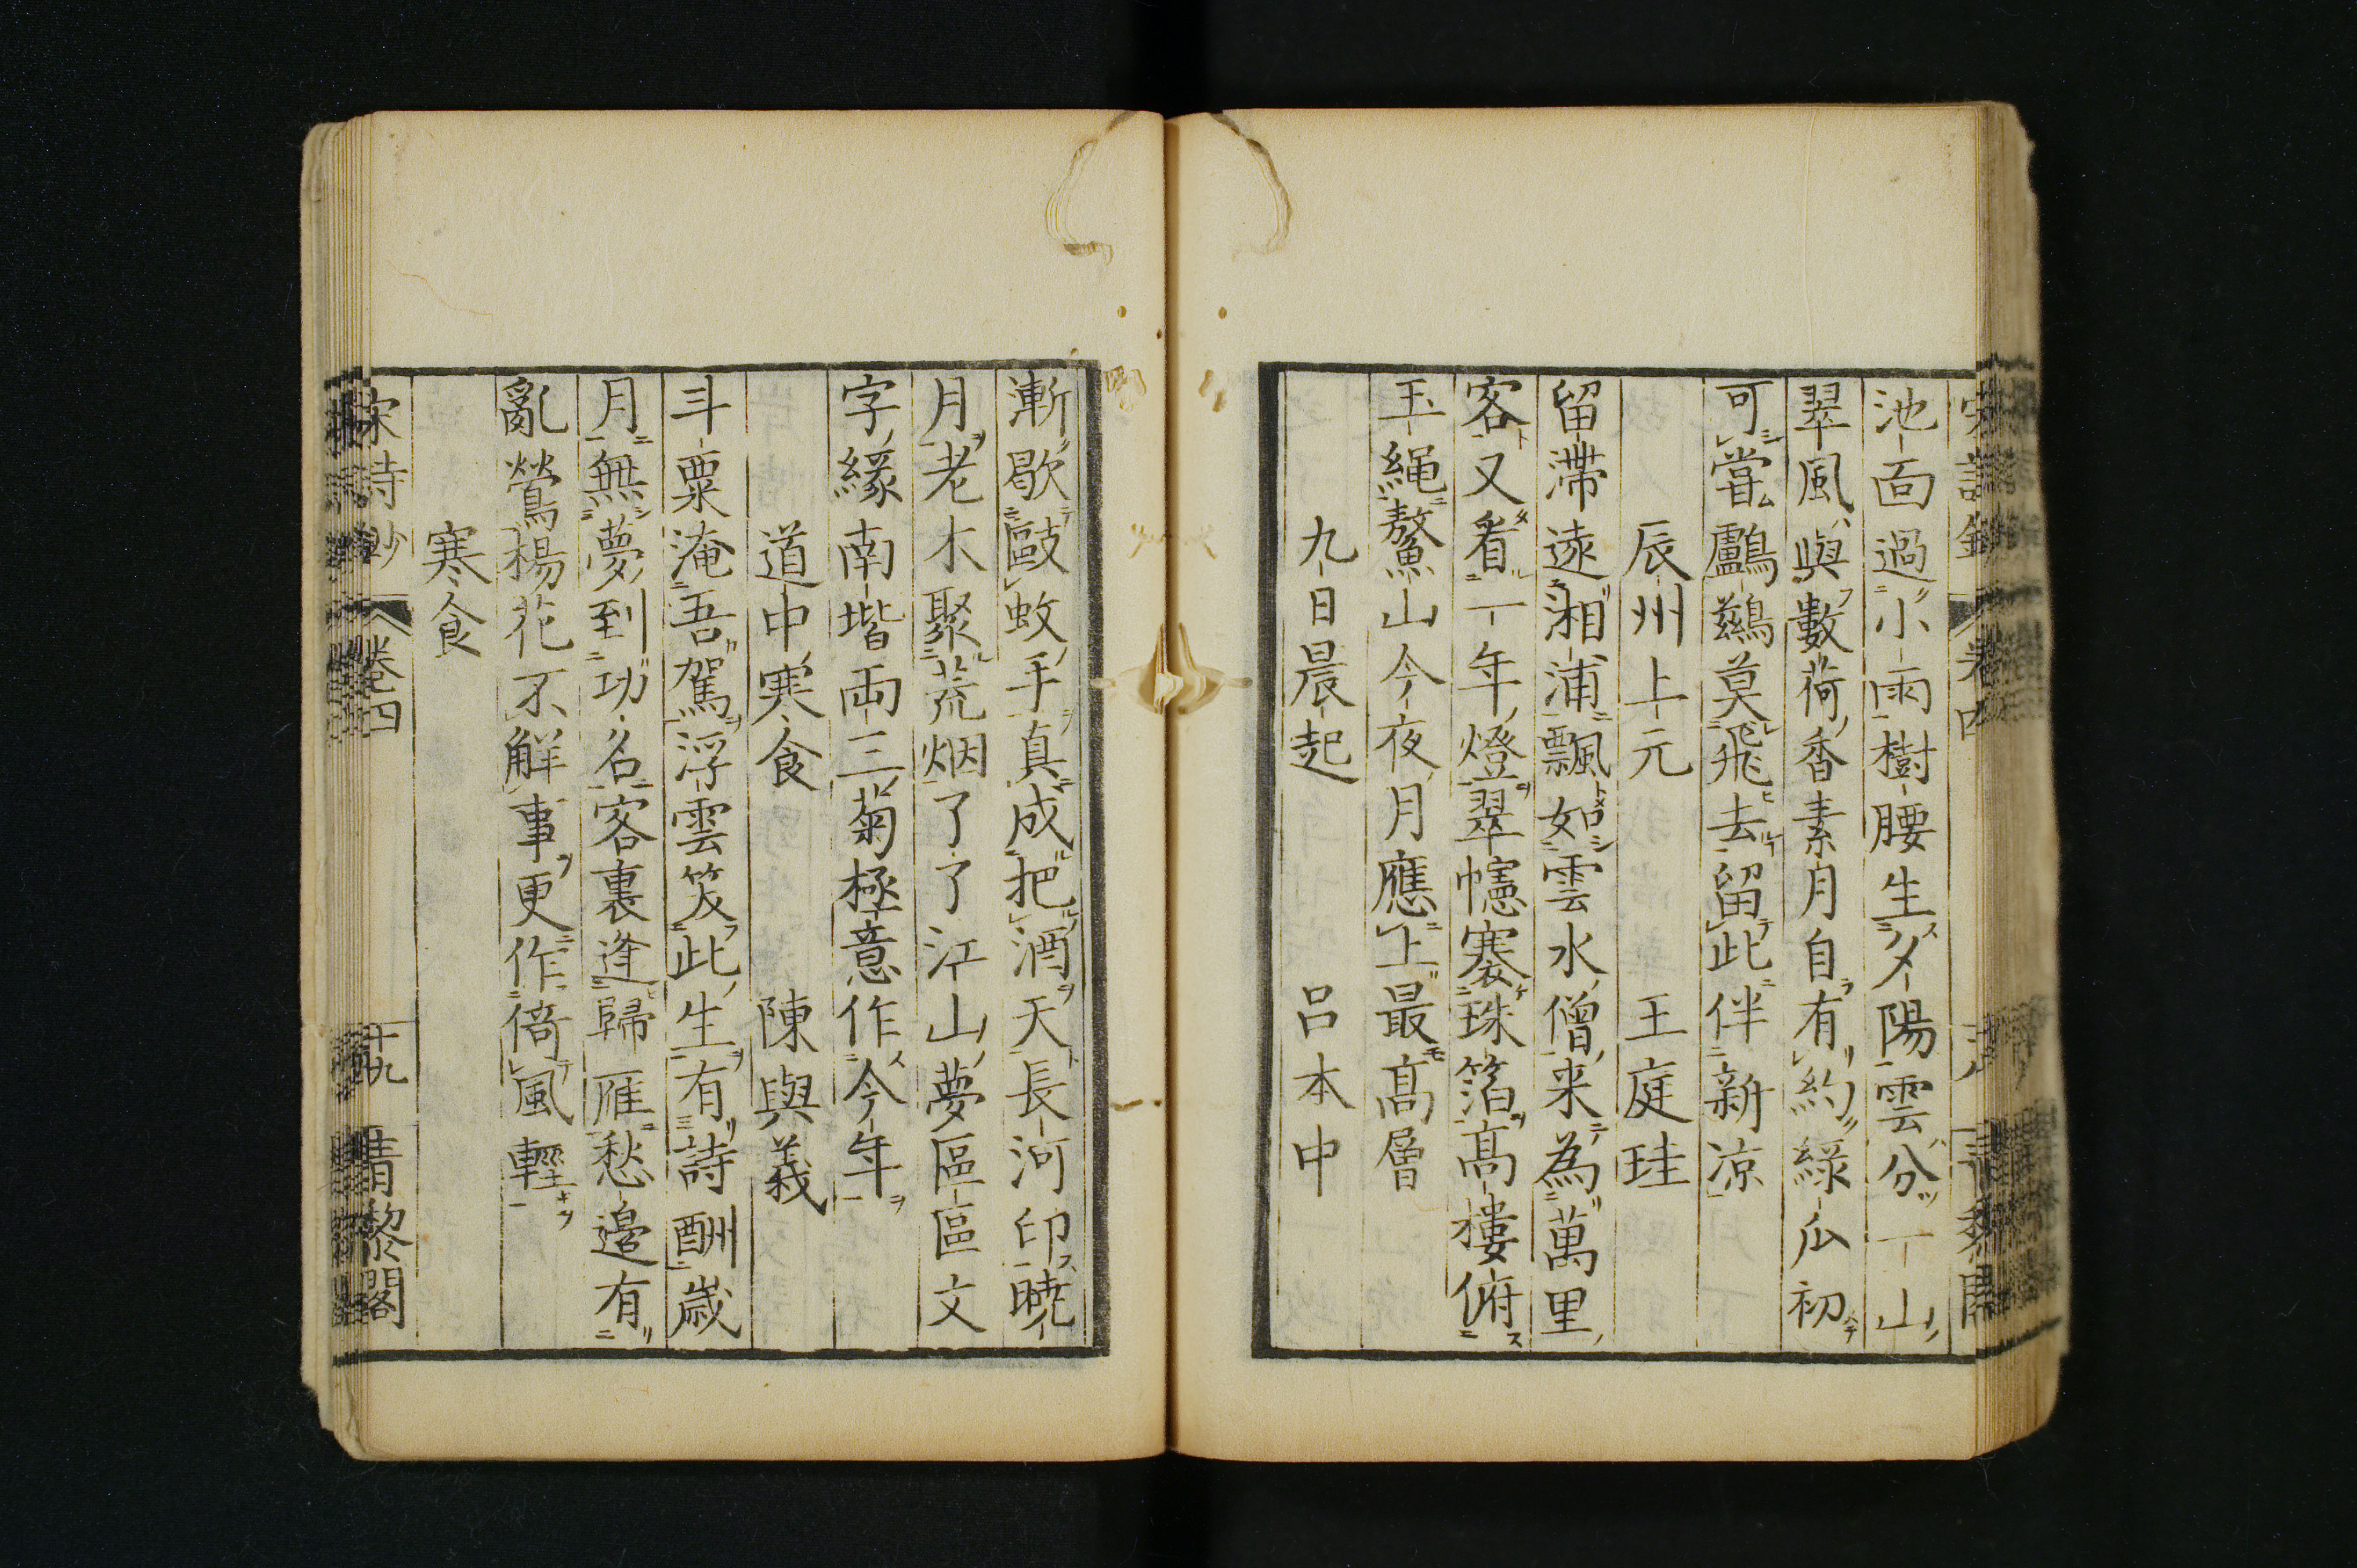 池面過小雨樹腰生夕陽雲分一山
翠風與數荷香素月自有約綠瓜初
可嘗鸕鷀莫飛去留此伴新凉
辰州上元 王庭珪
留滯遠湘浦飄如雲水僧来為萬里
客又看一年燈翠幰褰珠箔髙樓俯
玉繩鰲山今夜月應上最髙層
九日晨起 呂本中
漸歇敺蚊手真成把酒天長河印曉
月老木聚荒烟了了江山夢區區文
字緣南堦兩三菊極意作今年
道中寒食 陳與義
斗粟淹吾駕浮雲笑此生有詩酬歲
月無夢到功名客裏逢歸雁愁邊有
亂鶯楊花不解事更作倚風輕
寒食
宋詩鈔 卷四 十九 青黎閣